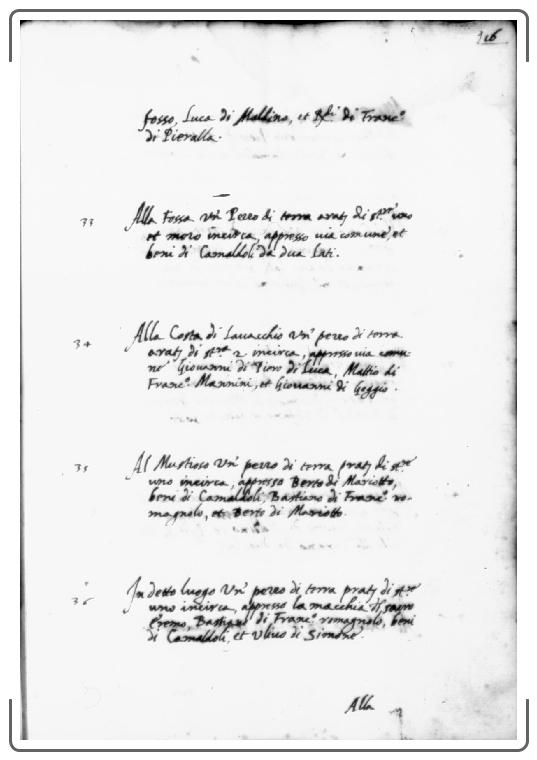 16
fosso, Luca di Moldino, et Rede di Franc.o
di Pieralla.
33 Alla Fossa Un' Pezzo di terra arat. di st.re uno
et mezo incirca, appresso via comune, et
beni di Camaldoli da dua Lati.
34 Alla Costa di Lauacchio Un' pezzo di terra
arat. di st.re 2 incirca, appresso via comu-
ne' Giouanni di Piero di Luca, Mattio di
Franc.o Mannini, et Giouanni di Goggio.
35 Al Mustioso Un' pezzo di terra prat. di st.re
uno incirca, appresso Berto di Mariotto,
beni di Camaldoli, Bastiano di Franc.o ro-
magnolo, et Berto di Mariotto.
36 In detto luogo Un' pezzo di terra prat. di st.re
uno incirca, appresso la macchia sacro
Eremo, Bastiano di Franc.o romagnolo, beni
di Camaldoli, et Uliuo di Simone.
Alla